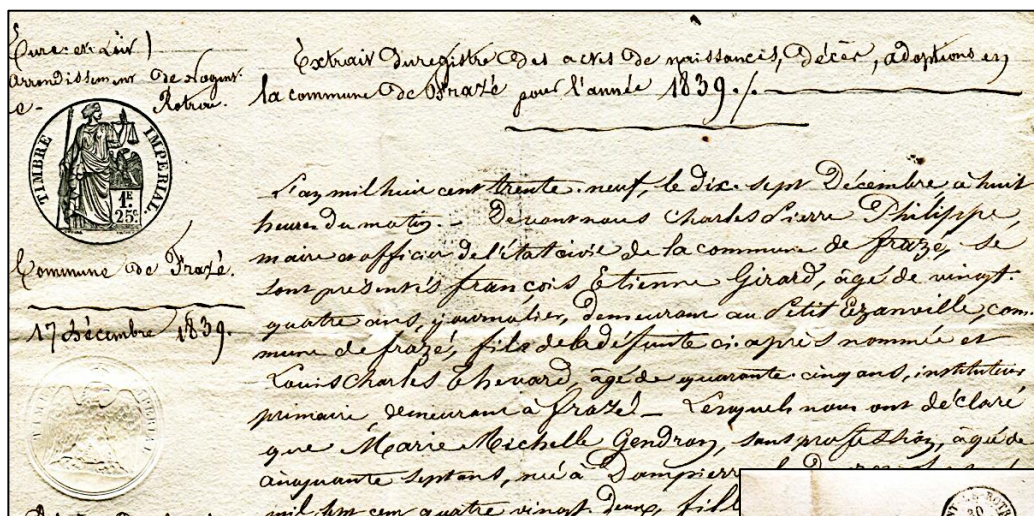 Eure-et-Loir)
Arrondissement de Nogent-
e- Rotrou.
TIMBRE IMPERIAL.
1F
25c
Commune de Frazé.
17 Décembre 1839.
TIMBRE IMPERIAL
Extrait du registre des actes de naissances, décès, adoptions en
la commune de Frazé pour l'année 1839./.
L'an mil huit cent trente-neuf, le dix-sept Décembre à huit
heures du matin. - Devant nous Charles Pierre Philippe,
maire et officier de l'état civil de la commune de frazé, se
sont présentés françois Etienne Girard, âgé de vingt-
quatre ans, journalier, demeurant au Petit Ezanville, com-
mune de frazé, fils de la défunte ci-après nommée et
Louis Charles Thevard, âgé de quarante-cinq ans, instituteur
primaire demeurant à frazé - Lesquels nous ont déclaré
que Marie Michelle Gendron, sans profession, âgée de
cinquante sept ans, née à Dampierre
mil sept cent quatre vingt deux, fill
ROTR
30